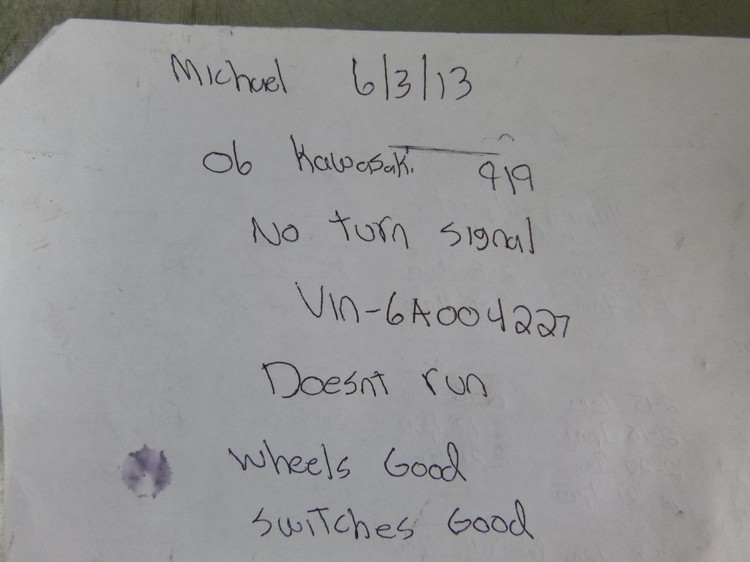 Michael 6/3/13
06 Kawasaki 919
No turn signal
Vin-6A004227
Doesnt run
Wheels Good
Switches Good